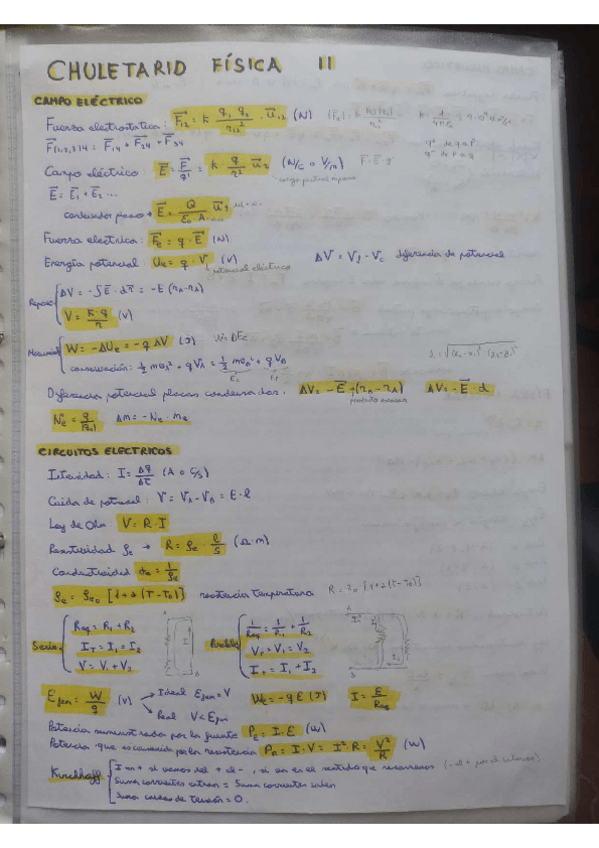 CHULETARIO FÍSICA II
CAMPO ELÉCTRICO
Fuerza electrostática: F₁₂ = k q₁ q₂ / r₁₂² · u₁₂ (N)
F(1,2,3)4 = F₁₄ + F₂₄ + F₃₄
Campo eléctrico: E = F / q' = k · q / r² u₂ (N/C o V/m) F = E · q
E = E₁ + E₂ ...
condensador plano → E = Q / ε₀ A
Fuerza electrica: Fe = q · E (N)
Energía potencial: Ue = q · V (V) ΔV = Vf - Vc diferencia de potencial
potencial eléctrico
Reposo ΔV = -∫E · dr = -E (rB - rA)
V = k · q / r (V)
Movimiento W = -ΔUe = -q ΔV (J) W = ΔEc
conservación: 1/2 mvA² + q VA = 1/2 mvB² + q VB
Diferencia potencial placas condensador. ΔV = -E · (rB - rA) ΔV = -E · d
producto escalar
Ne = q / |qe| Δm = -Ne · me
CIRCUITOS ELECTRICOS
Intensidad: I = Δq / Δt (A o C/s)
Caida de potencial: V = VA - VB = E · l
Ley de Ohm: V = R · I
Resistividad ρe → R = ρe · l / S (Ω · m)
Conductividad σe = 1 / ρe
ρe = ρe₀ [1 + α (T - T₀)] resistencia temperatura R = r₀ · [1 + α (T - T₀)]
Serie Req = R₁ + R₂
IT = I₁ = I₂
V = V₁ + V₂
Paralelo 1/Req = 1/R₁ + 1/R₂
VT = V₁ = V₂
IT = I₁ + I₂
Efem = W / q (V) Ideal Efem = V
Real V < Efem
We = -q E (J) I = E / Req
Potencia suministrada por la fuente PE = I · E (W)
Potencia que es consumida por la resistencia PR = I · V = I² R = V² / R (W)
Kirchhoff
Suma corrientes entran = Suma corrientes salen
Suma caidas de tensión = 0.